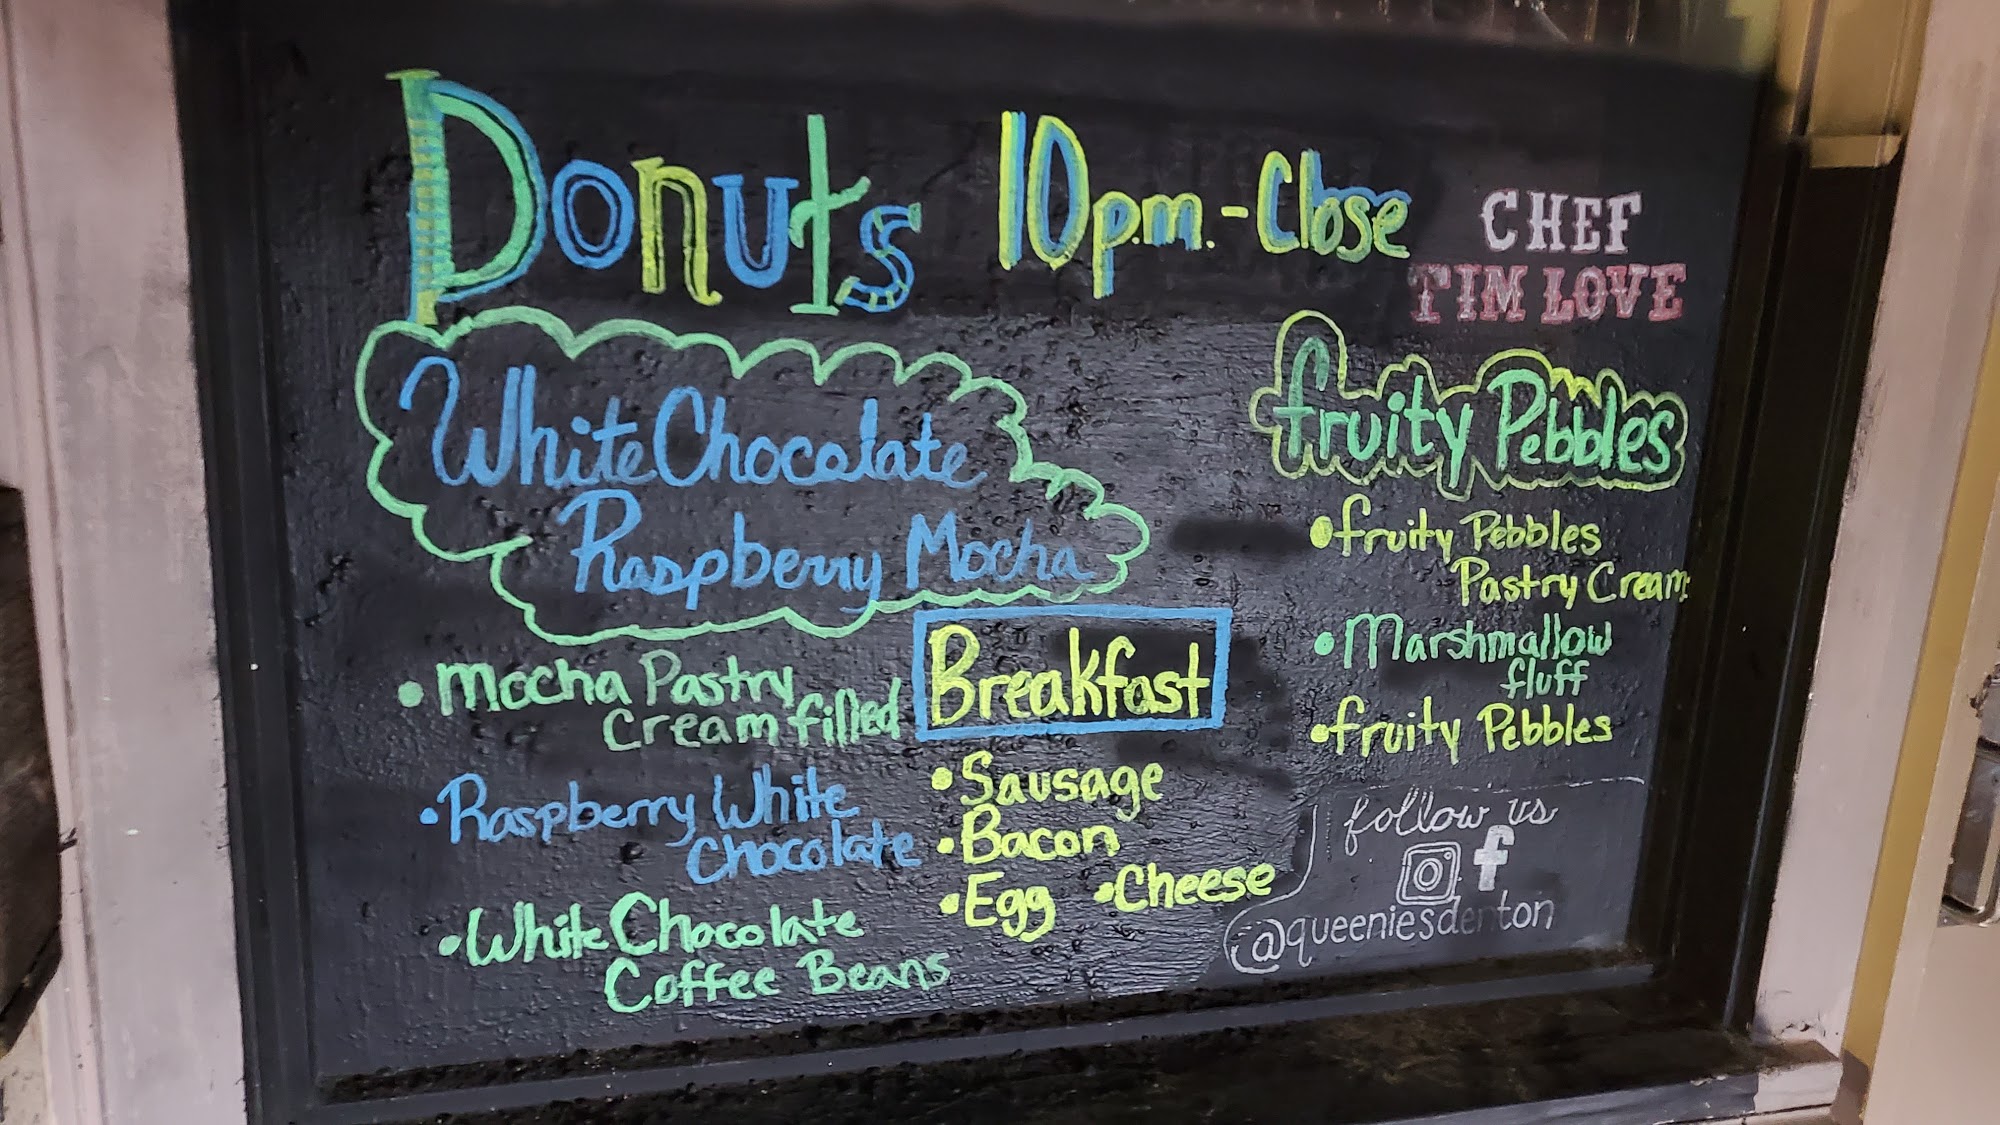 Donuts 10p.m. - Close
CHEF
TIM LOVE
White Chocolate
Raspberry Mocha
• Mocha Pastry
Cream filled
• Raspberry White
Chocolate
• White Chocolate
Coffee Beans
Breakfast
• Sausage
• Bacon
• Egg • Cheese
fruity Pebbles
• fruity Pebbles
Pastry Cream
• Marshmallow
fluff
• fruity Pebbles
follow us
f
@queeniesdenton